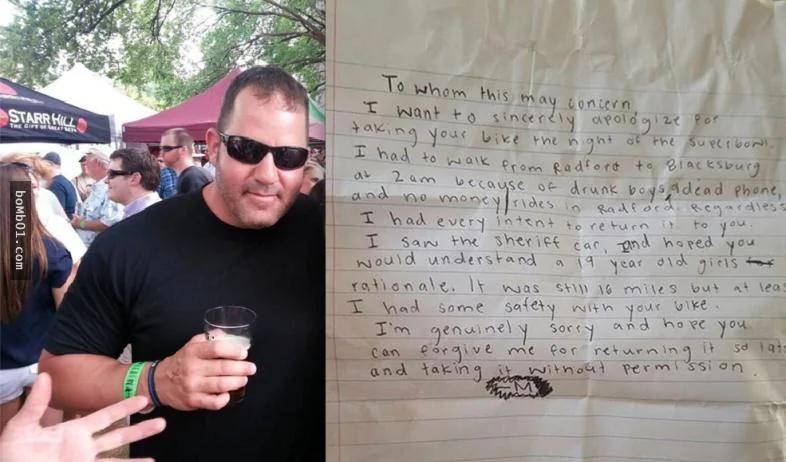 STARR HILL
THE GIFT OF GREAT BEER
boMb01.com
To whom this may concern,
I want to sincerely apologize for
taking your bike the night of the superbowl.
I had to walk from Radford to Blacksburg
at 2am because of drunk boys, a dead phone,
and no money/rides in Radford. Regardless
I had every intent to return it to you.
I saw the sheriff car, and hoped you
would understand a 19 year old girls
rationale. It was still 16 miles but at leas
I had some safety with your bike.
I'm genuinely sorry and hope you
can forgive me for returning it so late
and taking it without permission.